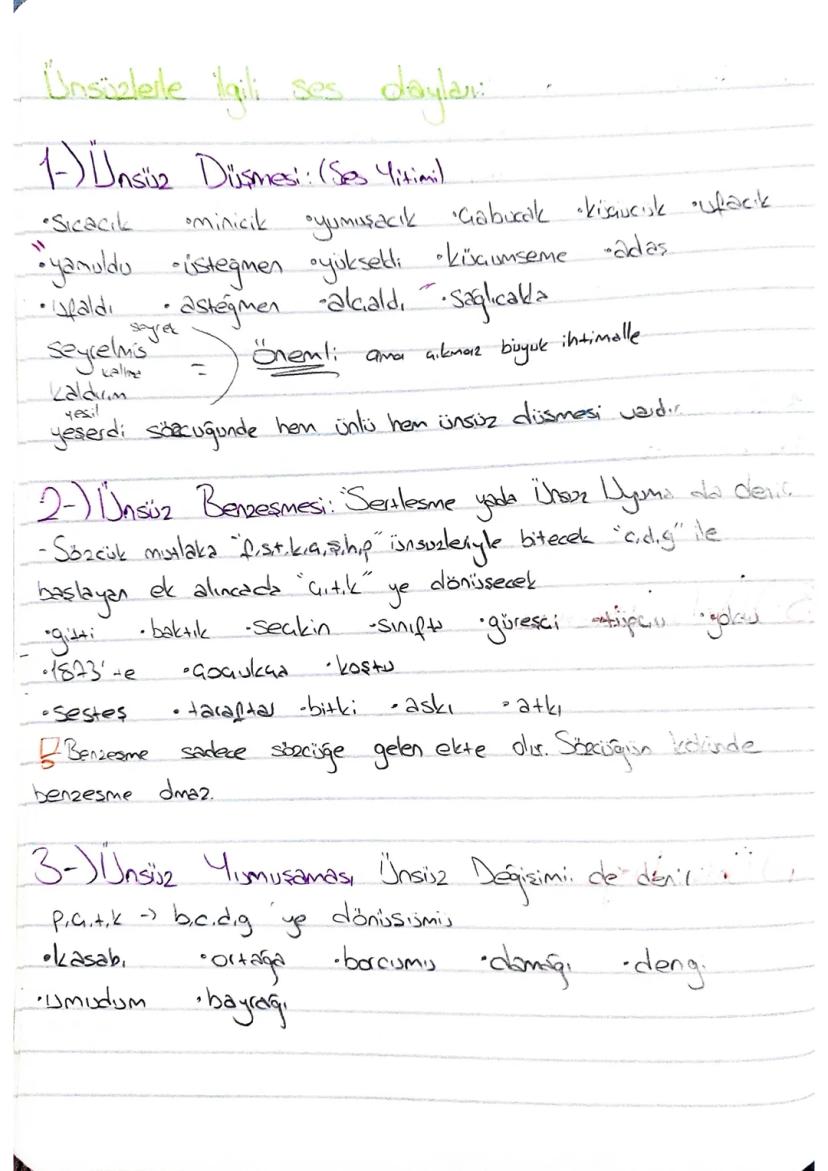 Ünsüzlerle ilgili ses olayları:
1-) Ünsüz Düşmesi: (Ses Yitimi)
•Sıcacık •minicik •yumuşacık •Çabucak •küçücük •ufacık
•yanıldı •üsteğmen •yükseldi •küçümseme •adaş
•ufaldı •asteğmen •alçaldı •sağlıcakla
seyrek
seyrelmiş
=) Önemli ama çıkmaz büyük ihtimalle
kaldırım
yeşil
yeşerdi sözcüğünde hem ünlü hem ünsüz düşmesi vardır.
2-) Ünsüz Benzeşmesi: Sertleşme yada Ünsüz Uyumu da denir.
- Sözcük mutlaka "f,s,t,k,ç,ş,h,p" ünsüzleriyle bitecek "c,d,g" ile
başlayan ek alıncada "ç,t,k" ye dönüşecek
•gitti •baktık •seçkin •sınıfta •güreşci •tüpçü
•1873'te •çocukça •koştu
•sesteş •taraftar •bitki •askı •atkı
Benzeşme sadece sözcüğe gelen ekte olur. Sözcüğün kökünde
benzeşme olmaz.
3-) Ünsüz Yumuşaması, Ünsüz Değişimi de denir.
p,ç,t,k -> b,c,d,g 'ye dönüşümü
•kasabı •ortağa •borcumu •damağı •dengi
•umudum •bayrağı